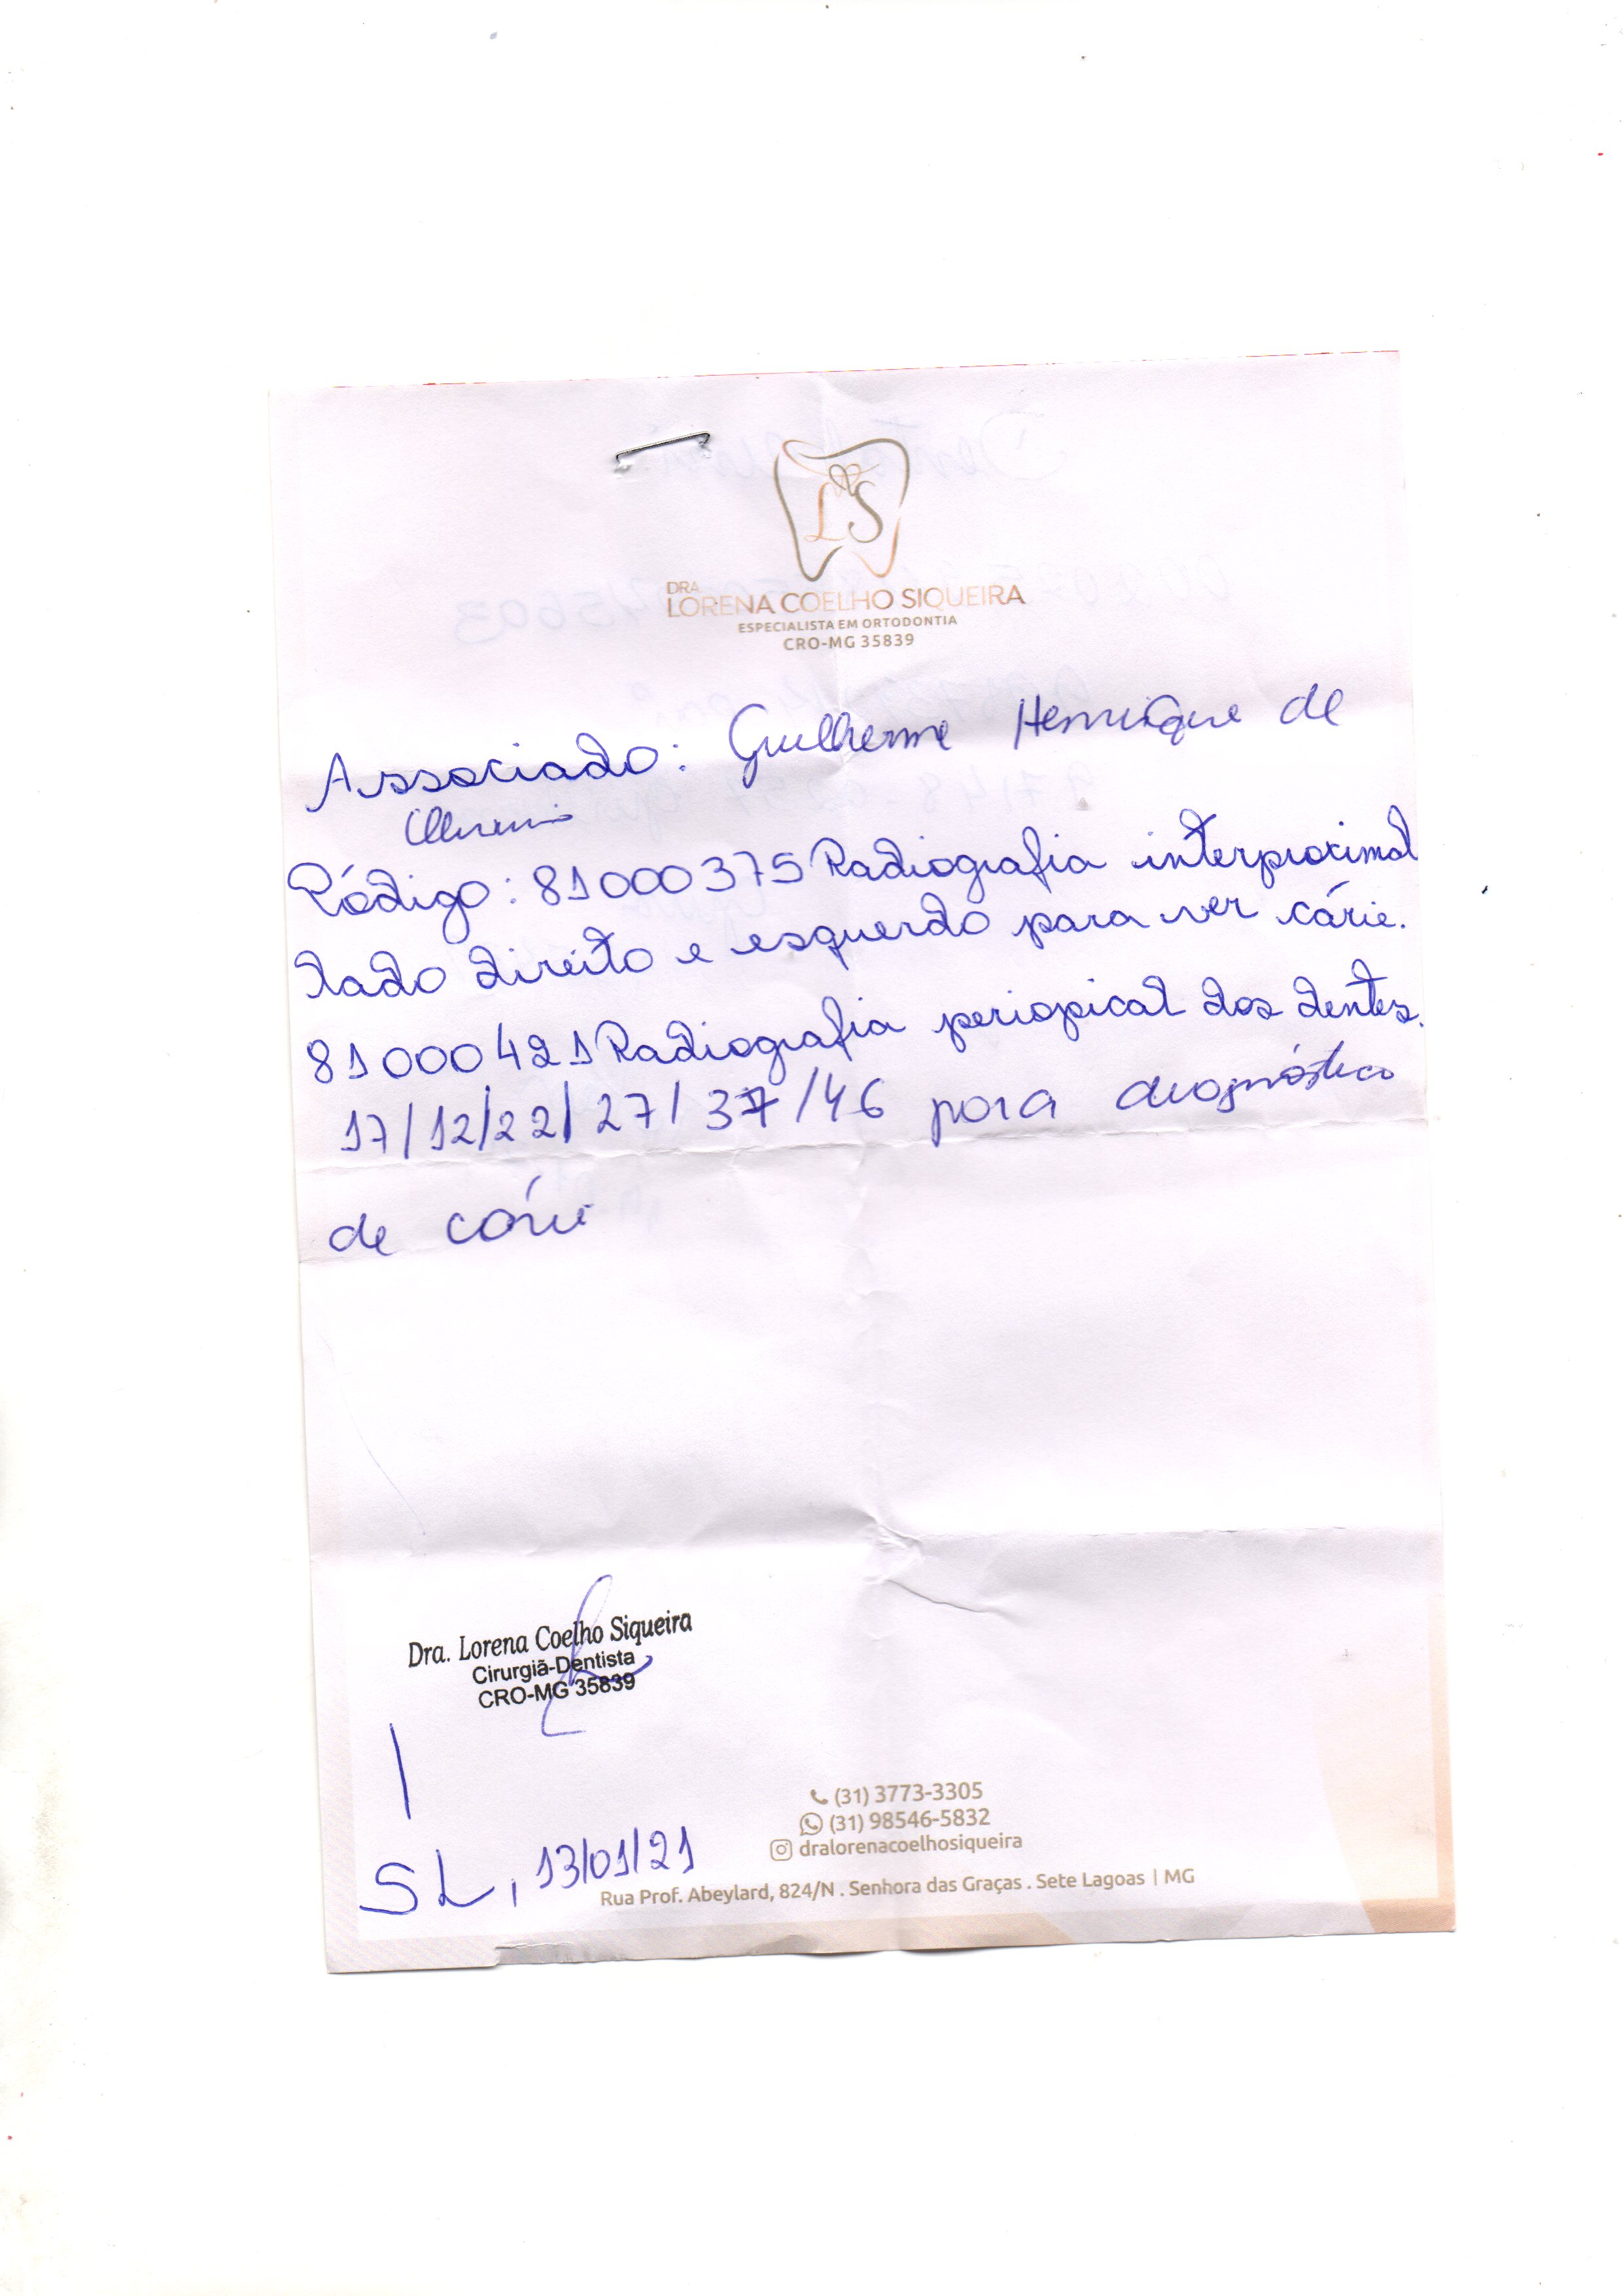 LS
DRA.
LORENA COELHO SIQUEIRA
ESPECIALISTA EM ORTODONTIA
CRO-MG 35839
Associado: Guilherme Henrique de
Código: 81000375 Radiografia interproximal
lado direito e esquerdo para ver cárie.
81000421 Radiografia periapical dos dentes.
17/12/22/27/37/46 para diagnóstico
de cárie
Dra. Lorena Coelho Siqueira
Cirurgiã-Dentista
CRO-MG 35839
(31) 3773-3305
(31) 98546-5832
dralorenacoelhosiqueira
SL, 13/01/21
Rua Prof. Abeylard, 824/N . Senhora das Graças . Sete Lagoas | MG